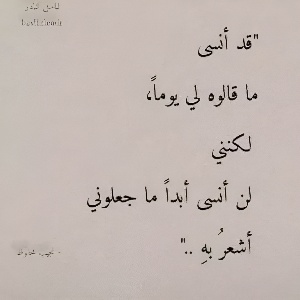 "قد أنسى
ما قالوه لي يوماً،
لكنني
لن أنسى أبداً ما جعلوني
أشعرُ بهِ .."